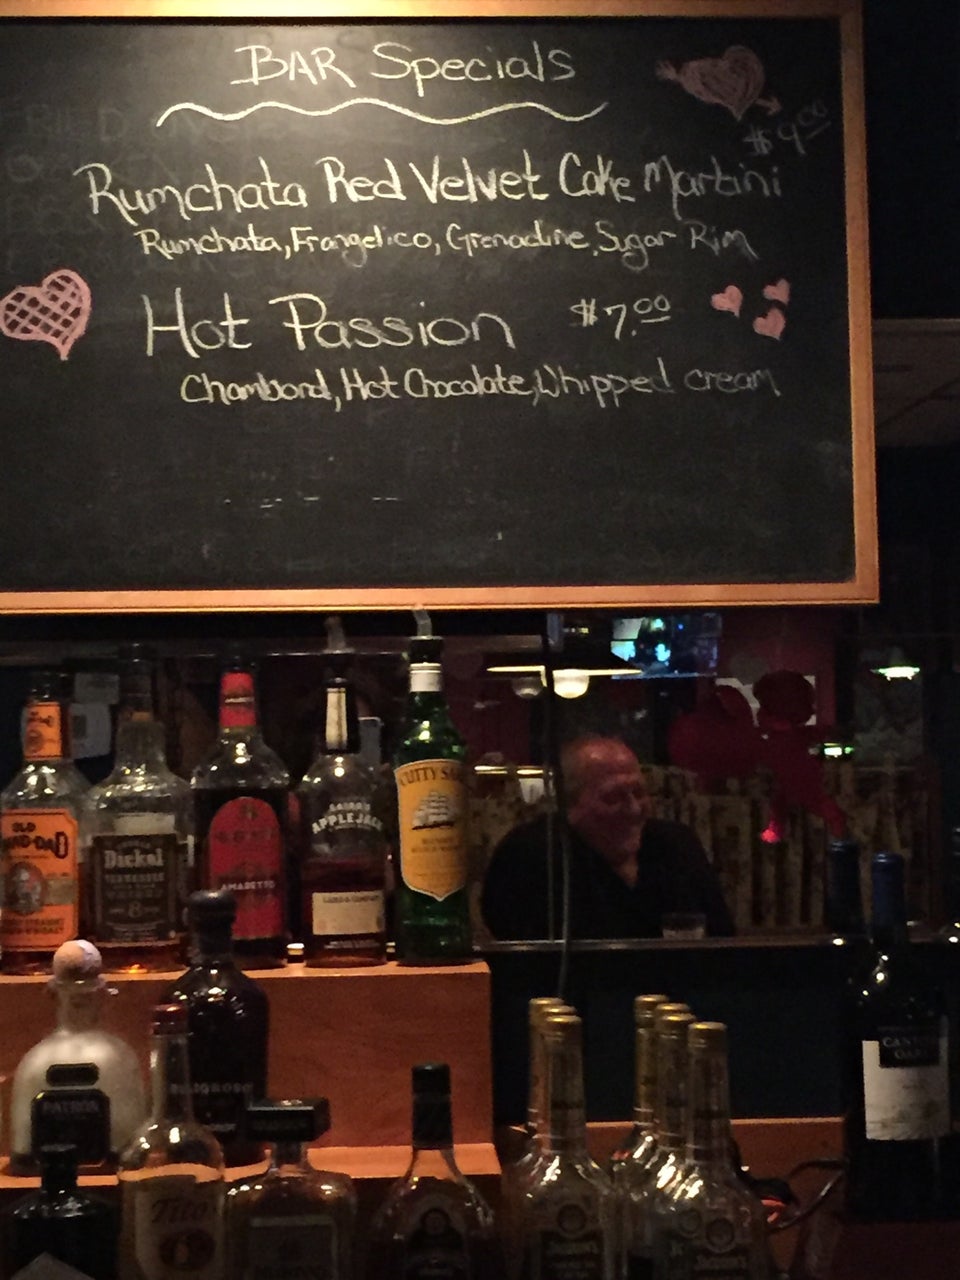 BAR Specials
$9.00
Rumchata Red Velvet Cake Martini
Rumchata, Frangelico, Grenadine, Sugar Rim
Hot Passion $7.00
Chambord, Hot Chocolate, Whipped cream
OLD
Dickel
TENNESSEE
8
AMARETTO
LAIRD'S
APPLEJACK
LAIRD & COMPANY
CUTTY SARK
PATRON
Tito